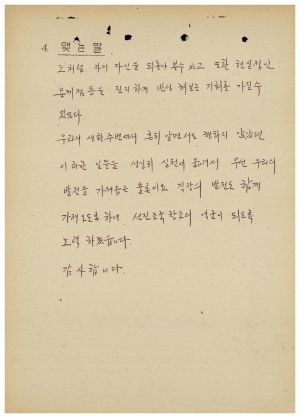 4. 맺는말
노처럼 자기 자신을 되돌아 볼수 있고 또한 현실적인
문제점등을 진지하게 반성 해보는 기회를 가질수
있었다.
우리의 생활주변에서 흔히 알면서도 행하지 않았던
이러한 일들을 성실히 실천에 옮겨서 우선 우리의
발전을 가져옴은 물론이요 직장의 발전도 함께
가져오도록 하여 선진조국 창조의 역군이 되도록
노력 하겠읍니다.
감사합니다.